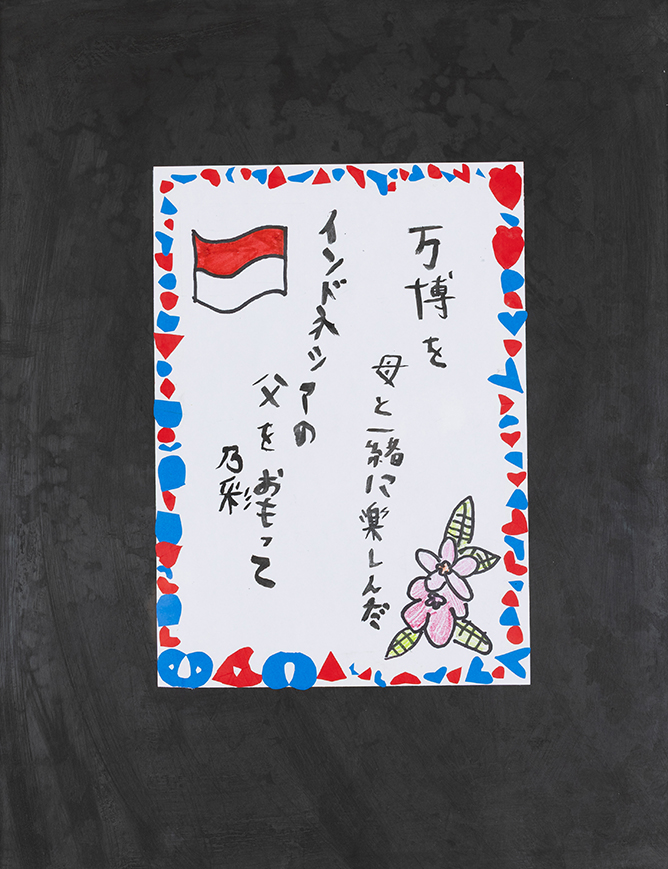 万博を
母と一緒に楽しんだ
インドネシアの
父をおもって
乃彩